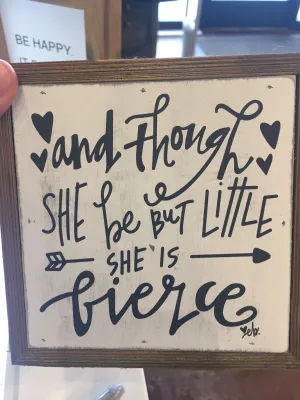 BE HAPPY.
and though
SHE be BUT LITTLE
SHE IS
fierce